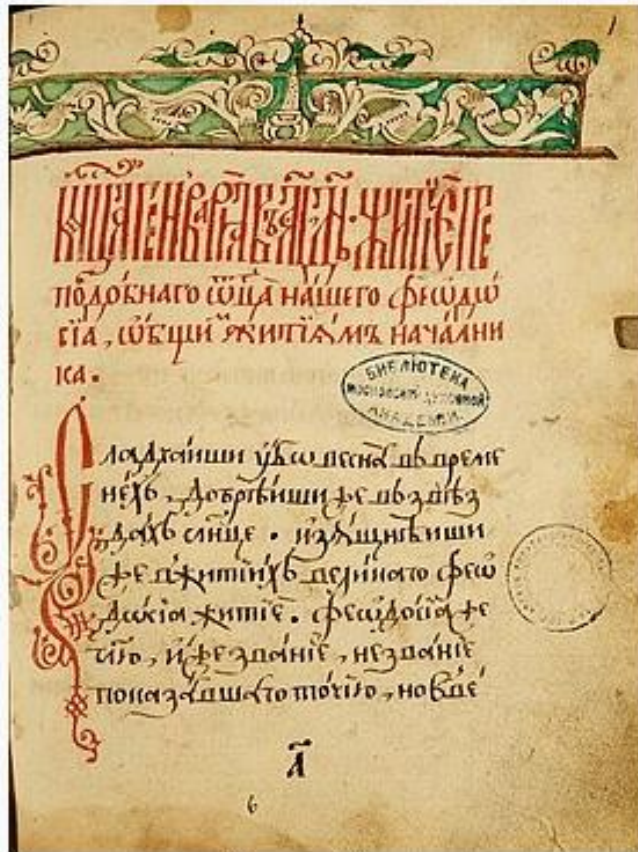 1
мц҃а генваря въ а҃і дн҃ь. житїе пре
подобнаго ѿц҃а на́шего феѡдѡ
сїа, ѡ҆бщи житїямъ нача́лни
ка.
БИБЛІОТЕКА
МОСКОВСКОЙ ДУХОВНОЙ
АКАДЕМІИ.
Сладча́иши ᲂу҆́бѡ весна̀ въ време
не́хъ, добрѣ́иши же въ звѣз
да́хъ сл҃нце. и҆зѧ́щнѣиши
же в житїи́хъ вели́каго феѡ
до́сїа житїѐ. феѡдо́сїа же
чїю, и҆́же зва́нїе, незва́нїе
показа́вшаго то́чїю, но и҆ ве́
а҃
6